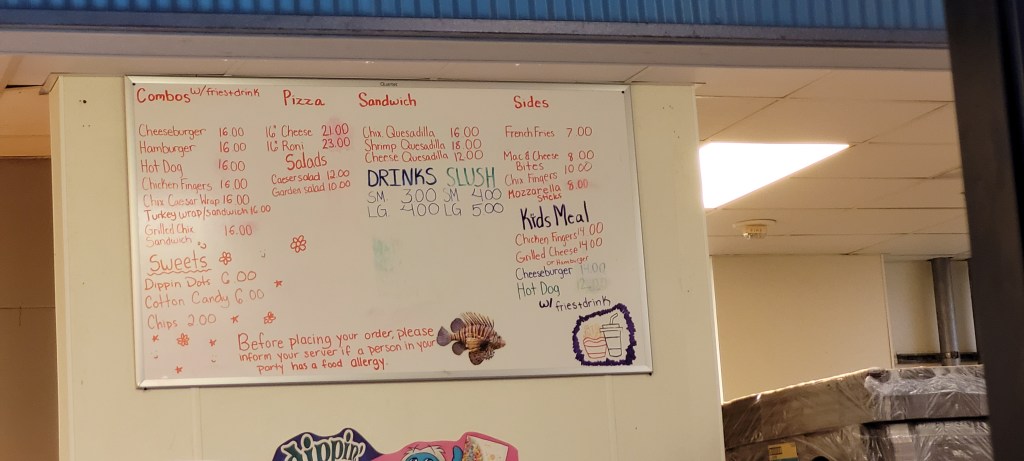 Quartet
Combos w/fries+drink
Cheeseburger 16.00
Hamburger 16.00
Hot Dog 16.00
Chicken Fingers 16.00
Chix Caesar Wrap 16.00
Turkey wrap/sandwich 16.00
Grilled Chix 16.00
Sandwich
Sweets
Dippin Dots 6.00
Cotton Candy 6.00
Chips 2.00
Pizza
16" Cheese 21.00
16" Roni 23.00
Salads
Caeser salad 12.00
Garden salad 10.00
Sandwich
Chix Quesadilla 16.00
Shrimp Quesadilla 18.00
Cheese Quesadilla 12.00
DRINKS
SM. 3.00
LG. 4.00
SLUSH
SM 4.00
LG 5.00
Sides
French Fries 7.00
Mac & Cheese 8.00
Bites
Chix Fingers 10.00
Mozzarella 8.00
Sticks
Kids Meal
Chicken Fingers 14.00
Grilled Cheese 14.00
or Hamburger
Cheeseburger 14.00
Hot Dog
w/ fries+drink
Before placing your order, please
inform your server if a person in your
party has a food allergy.
dippin